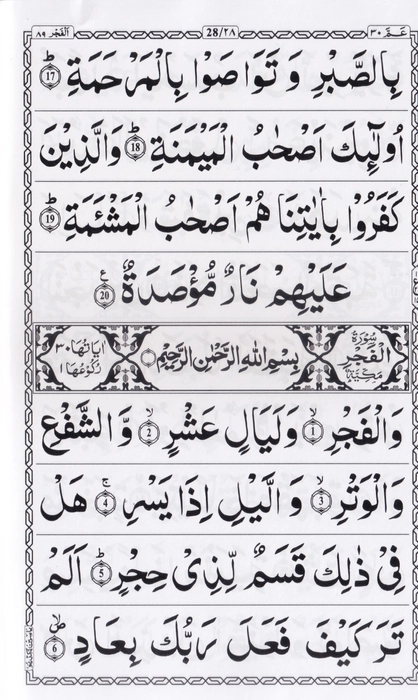 عَمَّ ٣٠
28/٢٨
اَلْفَجْر ٨٩
بِالصَّبْرِ وَ تَوَاصَوْا بِالْمَرْحَمَةِ ؕ 17
اُولٰٓئِكَ اَصْحٰبُ الْمَيْمَنَةِ ؕ 18 وَالَّذِيْنَ
كَفَرُوْا بِاٰيٰتِنَا هُمْ اَصْحٰبُ الْمَشْـَٔمَةِ ؕ 19
عَلَيْهِمْ نَارٌ مُّؤْصَدَةٌ ࣖ 20
سُوْرَةُ الْفَجْرِ مَكِّيَّةٌ
بِسْمِ اللّٰهِ الرَّحْمٰنِ الرَّحِيْمِ
اٰيَاتُهَا ٣٠ رُكُوْعُهَا ١
وَالْفَجْرِ ۙ 1 وَلَيَالٍ عَشْرٍ ۙ 2 وَّ الشَّفْعِ
وَالْوَتْرِ ۙ 3 وَ الَّيْلِ اِذَا يَسْرِ ۚ 4 هَلْ
فِيْ ذٰلِكَ قَسَمٌ لِّذِيْ حِجْرٍ ؕ 5 اَلَمْ
تَرَ كَيْفَ فَعَلَ رَبُّكَ بِعَادٍ ۪ۙ 6